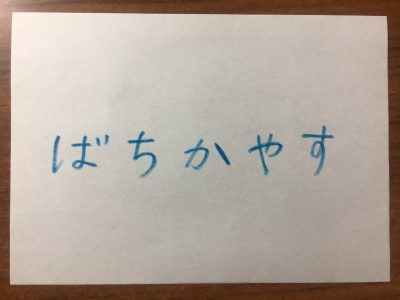 ばちかやす